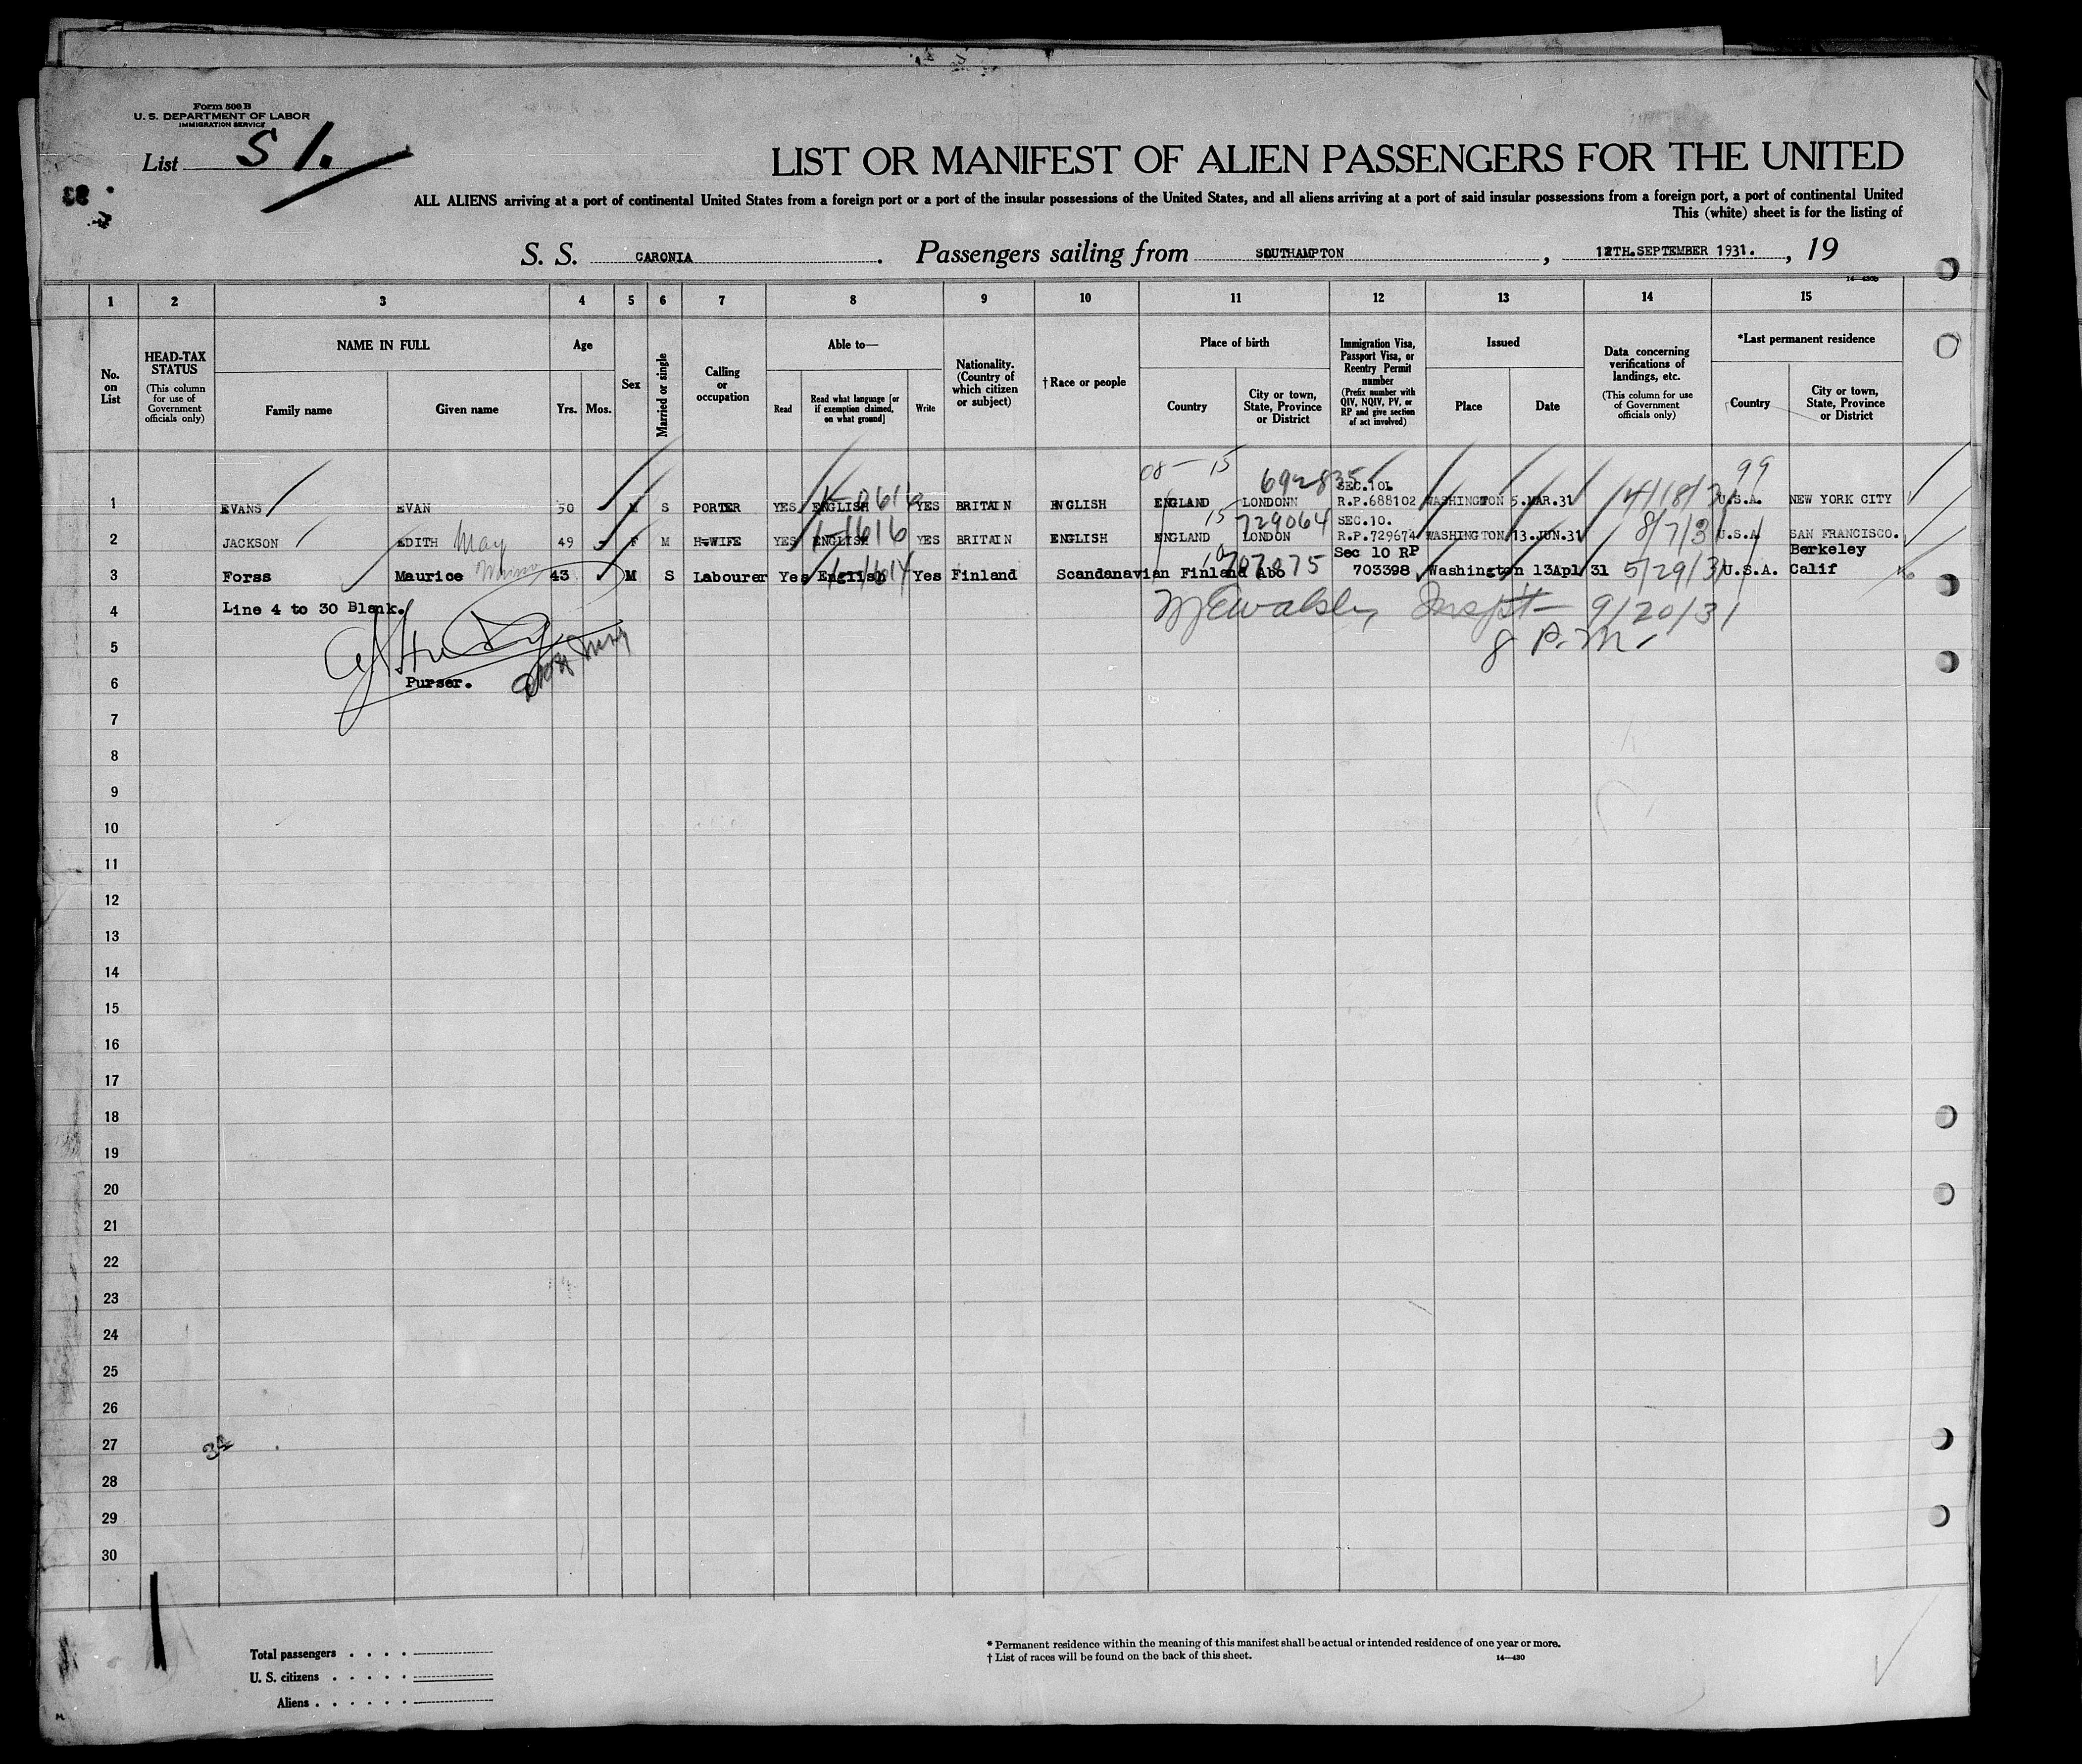 Form 500 B
U. S. DEPARTMENT OF LABOR
IMMIGRATION SERVICE
List S 1.
LIST OR MANIFEST OF ALIEN PASSENGERS FOR THE UNITED
ALL ALIENS arriving at a port of continental United States from a foreign port or a port of the insular possessions of the United States, and all aliens arriving at a port of said insular possessions from a foreign port, a port of continental United
This (white) sheet is for the listing of
S. S. CARONIA . Passengers sailing from SOUTHAMPTON , 12TH.SEPTEMBER 1931. , 19
14—430b
1 2 3 4 5 6 7 8 9 10 11 12 13 14 15
No. on List
HEAD-TAX STATUS (This column for use of Government officials only)
NAME IN FULL
Family name Given name
Age
Yrs. Mos.
Sex
Married or single
Calling or occupation
Able to—
Read
Read what language [or if exemption claimed, on what ground]
Write
Nationality. (Country of which citizen or subject)
†Race or people
Place of birth
Country
City or town, State, Province or District
Immigration Visa, Passport Visa, or Reentry Permit number (Prefix number with QIV, NQIV, PV, or RP and give section of act involved)
Issued
Place Date
Data concerning verifications of landings, etc. (This column for use of Government officials only)
*Last permanent residence
Country
City or town, State, Province or District
08 — 15 692835 99
SEC.10L
1 EVANS EVAN 50 M S PORTER YES ENGLISH YES BRITAIN ENGLISH ENGLAND LONDONN R.P.688102 WASHINGTON 5.MAR.31 4/18/31 U.S.A. NEW YORK CITY
15 729064 SEC.10.
2 JACKSON EDITH May 49 F M H-WIFE YES ENGLISH YES BRITAIN ENGLISH ENGLAND LONDON R.P.729674 WASHINGTON 13.JUN.31 8/7/31 U.S.A. SAN FRANCISCO.
707075 Sec 10 RP Berkeley
3 Forss Maurice 43 M S Labourer Yes English Yes Finland Scandanavian Finland Abo 703398 Washington 13Apl 31 5/29/31 U.S.A. Calif
4 Line 4 to 30 Blank. Inspt 9/20/31
5 8 P.M.
6 Purser.
7
8
9
10
11
12
13
14
15
16
17
18
19
20
21
22
23
24
25
26
27
28
29
30
Total passengers . . . .
U. S. citizens . . . . .
Aliens . . . . . .
* Permanent residence within the meaning of this manifest shall be actual or intended residence of one year or more.
† List of races will be found on the back of this sheet.
14—430